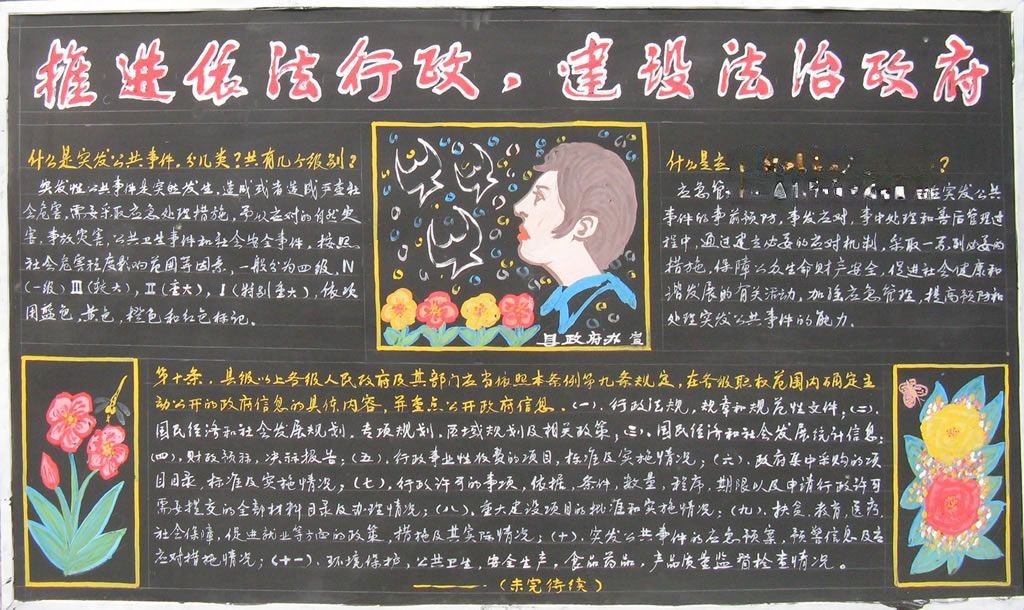 推进依法行政，建设法治政府
什么是突发公共事件。分几类？共有几个级别？
突发性公共事件是突然发生，造成或者造成严重社
会危害，需要采取应急处理措施，予以应对的自然灾
害，事故灾害，公共卫生事件和社会安全事件。按照
社会危害程度影响范围等因素，一般分为四级，Ⅳ
(一级)Ⅲ(较大)，Ⅱ(重大)，Ⅰ(特别重大)，依次
用蓝色，黄色，橙色和红色标记。
县政府办宣
什么是 ？
应急管 突发公共
事件的事前预防，事发应对，事中处理和善后管理过
程中，通过建立必要的应对机制，采取一系列必要的
措施，保障公众生命财产安全，促进社会健康和
谐发展的有关活动，加强应急管理，提高预防和
处理突发公共事件的能力。
第十条，县级以上各级人民政府及其部门应当依照本条例第九条规定，在各级职权范围内确定主
动公开的政府信息的具体内容，并重点公开政府信息。(一)、行政法规，规章和规范性文件，(二)、
国民经济和社会发展规划，专项规划，区域规划及相关政策，(三)、国民经济和社会发展统计信息；
(四)、财政预标，决标报告；(五)，行政事业性收费的项目，标准及实施情况；(六)、政府集中采购的项
目目录，标准及实施情况；(七)，行政许可的事项，依据，条件，数量，程序，期限以及申请行政许可
需要提交的全部材料目录及办理情况；(八)，重大建设项目的批准和实施情况；(九)、扶贫、教育、医药，
社会保障，促进就业等方面的政策，措施及其实际情况；(十)、突发公共事件的应急预案，预警信息及应
应对措施情况；(十一)、环境保护，公共卫生，安全生产，食品药品，产品质量监督检查情况。
——(未完待续)